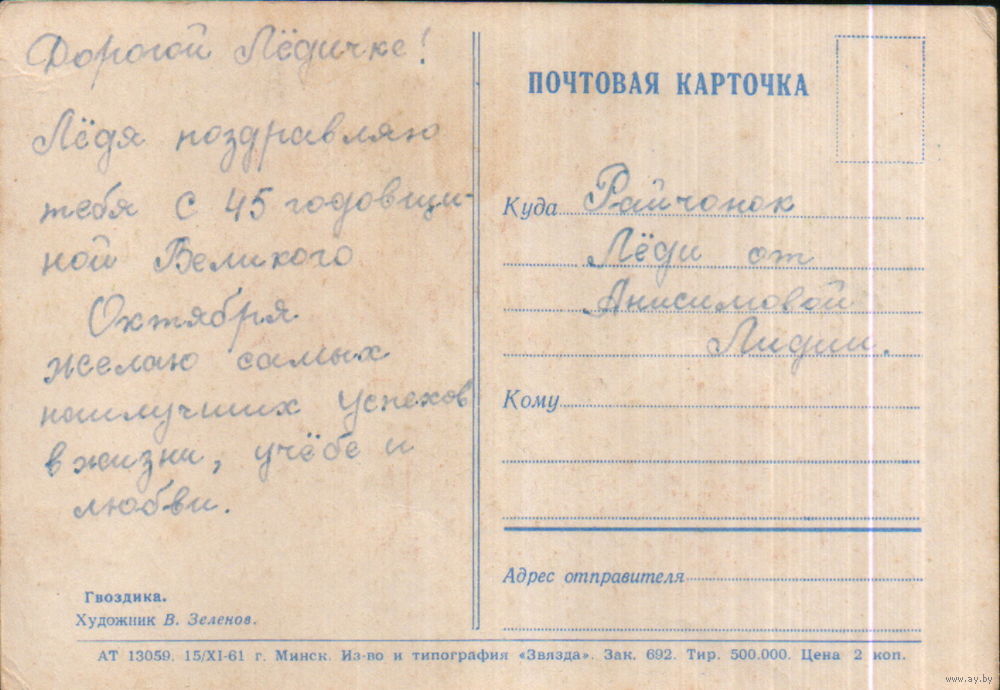 Дорогой Лёдичке!
Лёдя поздравляю
тебя с 45 годовщи-
ной Великого
Октября
желаю самых
наилучших успехов
в жизни, учёбе и
любви.
Гвоздика.
Художник В. Зеленов.
ПОЧТОВАЯ КАРТОЧКА
Куда Райчонок
Лёди от
Анисимовой
Лидии.
Кому
Адрес отправителя
АТ 13059. 15/XI-61 г. Минск. Из-во и типография «Звязда». Зак. 692. Тир. 500.000. Цена 2 коп.
www.ay.by